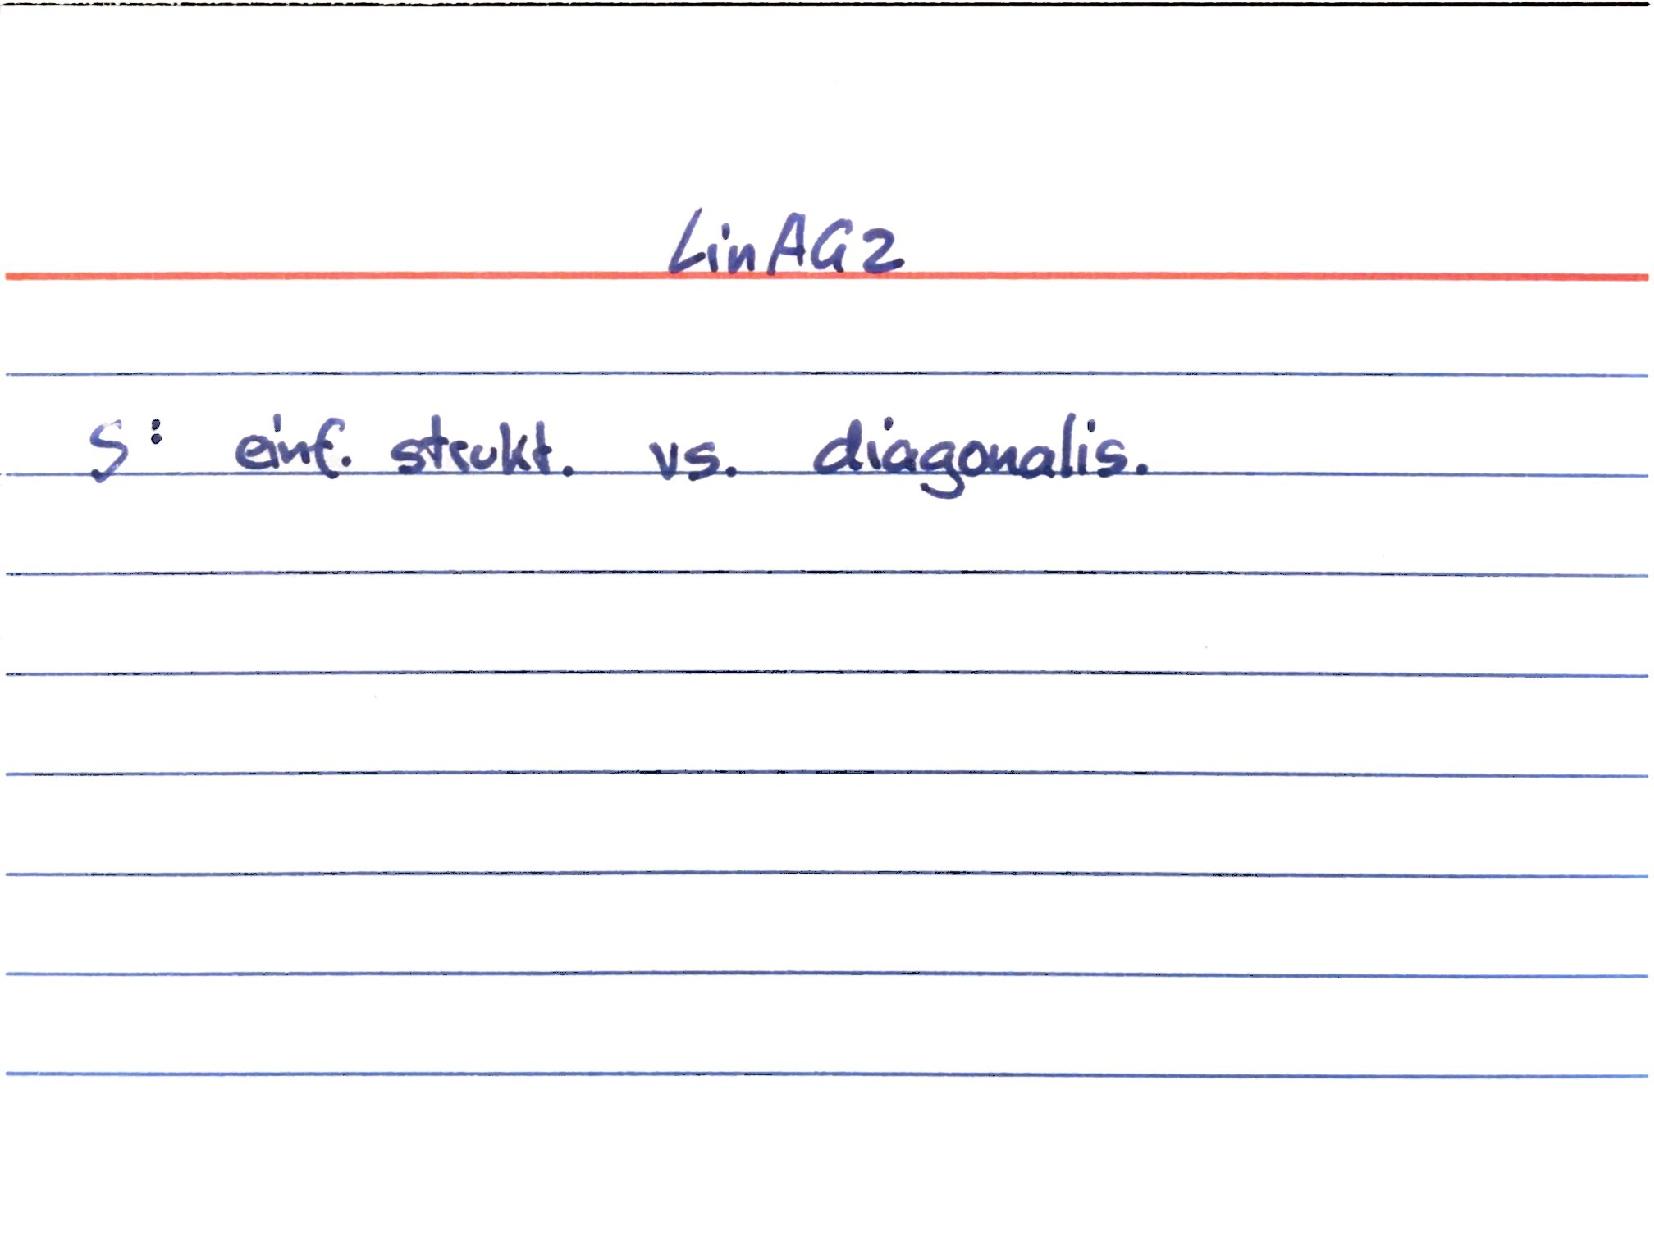 LinAG2
S: einf. strukt. vs. diagonalis.